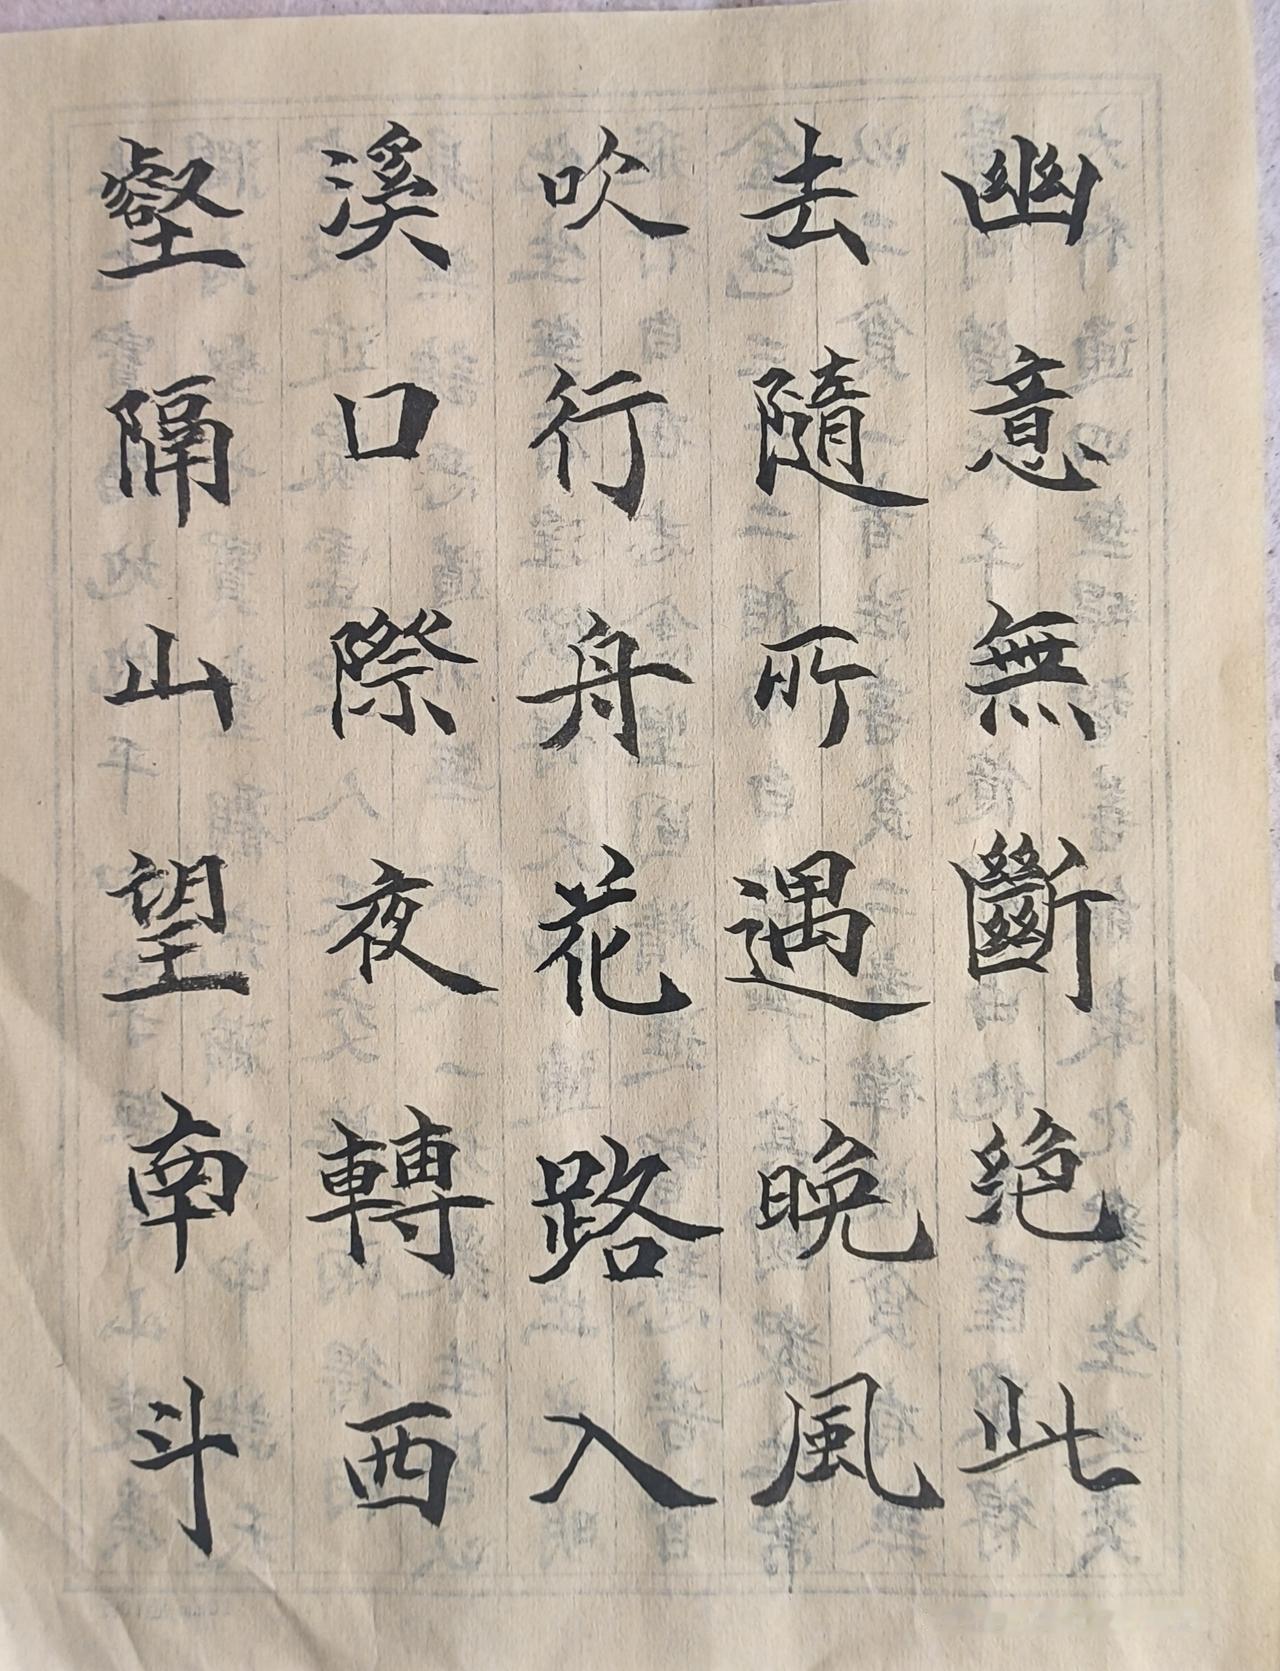 幽意無斷絕此
去隨所遇晚風
吹行舟花路入
溪口際夜轉西
壑隔山望南斗